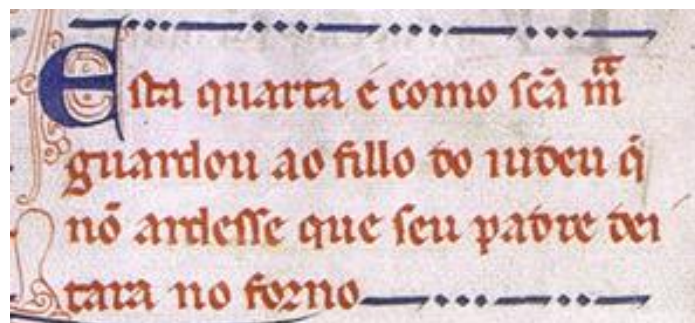 Esta quarta é como scã mã
guardou ao fillo do iudeu q̃
nõ ardesse que seu padre dei
tara no forno